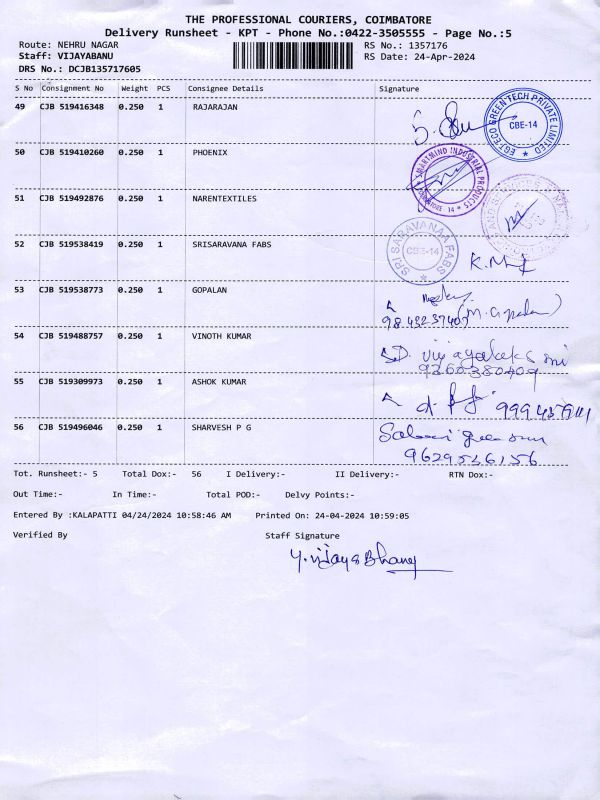 THE PROFESSIONAL COURIERS, COIMBATORE
Delivery Runsheet - KPT - Phone No.:0422-3505555 - Page No.:5
Route: NEHRU NAGAR RS No.: 1357176
Staff: VIJAYABANU RS Date: 24-Apr-2024
DRS No.: DCJB135717605
S No Consignment No Weight PCS Consignee Details Signature
49 CJB 519416348 0.250 1 RAJARAJAN
EGT ECO GREEN TECH PRIVATE LIMITED CBE-14
50 CJB 519410260 0.250 1 PHOENIX
SMARTMIND INDUSTRIAL PRODUCTS
51 CJB 519492876 0.250 1 NARENTEXTILES
52 CJB 519538419 0.250 1 SRISARAVANA FABS
SRI SARAVANAA FABS CBE-14
53 CJB 519538773 0.250 1 GOPALAN
(M. Gopalan)
54 CJB 519488757 0.250 1 VINOTH KUMAR
9360380409
55 CJB 519309973 0.250 1 ASHOK KUMAR
56 CJB 519496046 0.250 1 SHARVESH P G
9629526156
Tot. Runsheet:- 5 Total Dox:- 56 I Delivery:- II Delivery:- RTN Dox:-
Out Time:- In Time:- Total POD:- Delvy Points:-
Entered By :KALAPATTI 04/24/2024 10:58:46 AM Printed On: 24-04-2024 10:59:05
Verified By Staff Signature
Y. Vijaya Bhanu